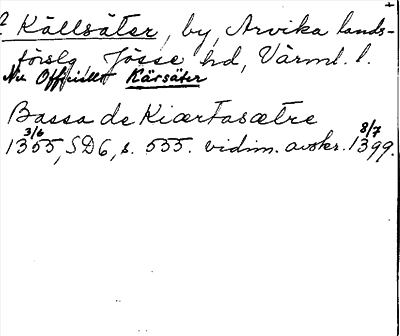 ? Källsäter, by, Arvika lands-
förslg Jösse hd, Värml. l.
Nu Officiellt Kärsäter
Bassa de Kiærtasætre
1355 3/6, SD6, s. 535. vidim. avskr. 1399 8/7.